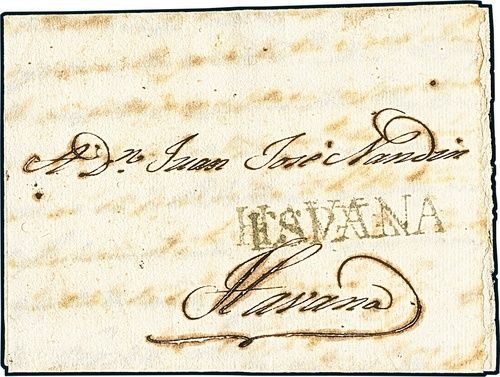 A Dn. Juan José Nandin
HAVANA
Havana